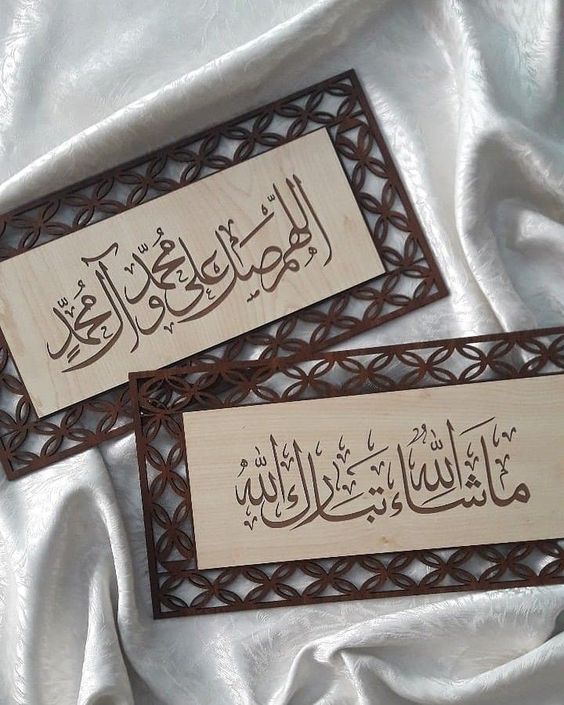 اللهم صل على محمد وآل محمد
ما شاء الله تبارك الله